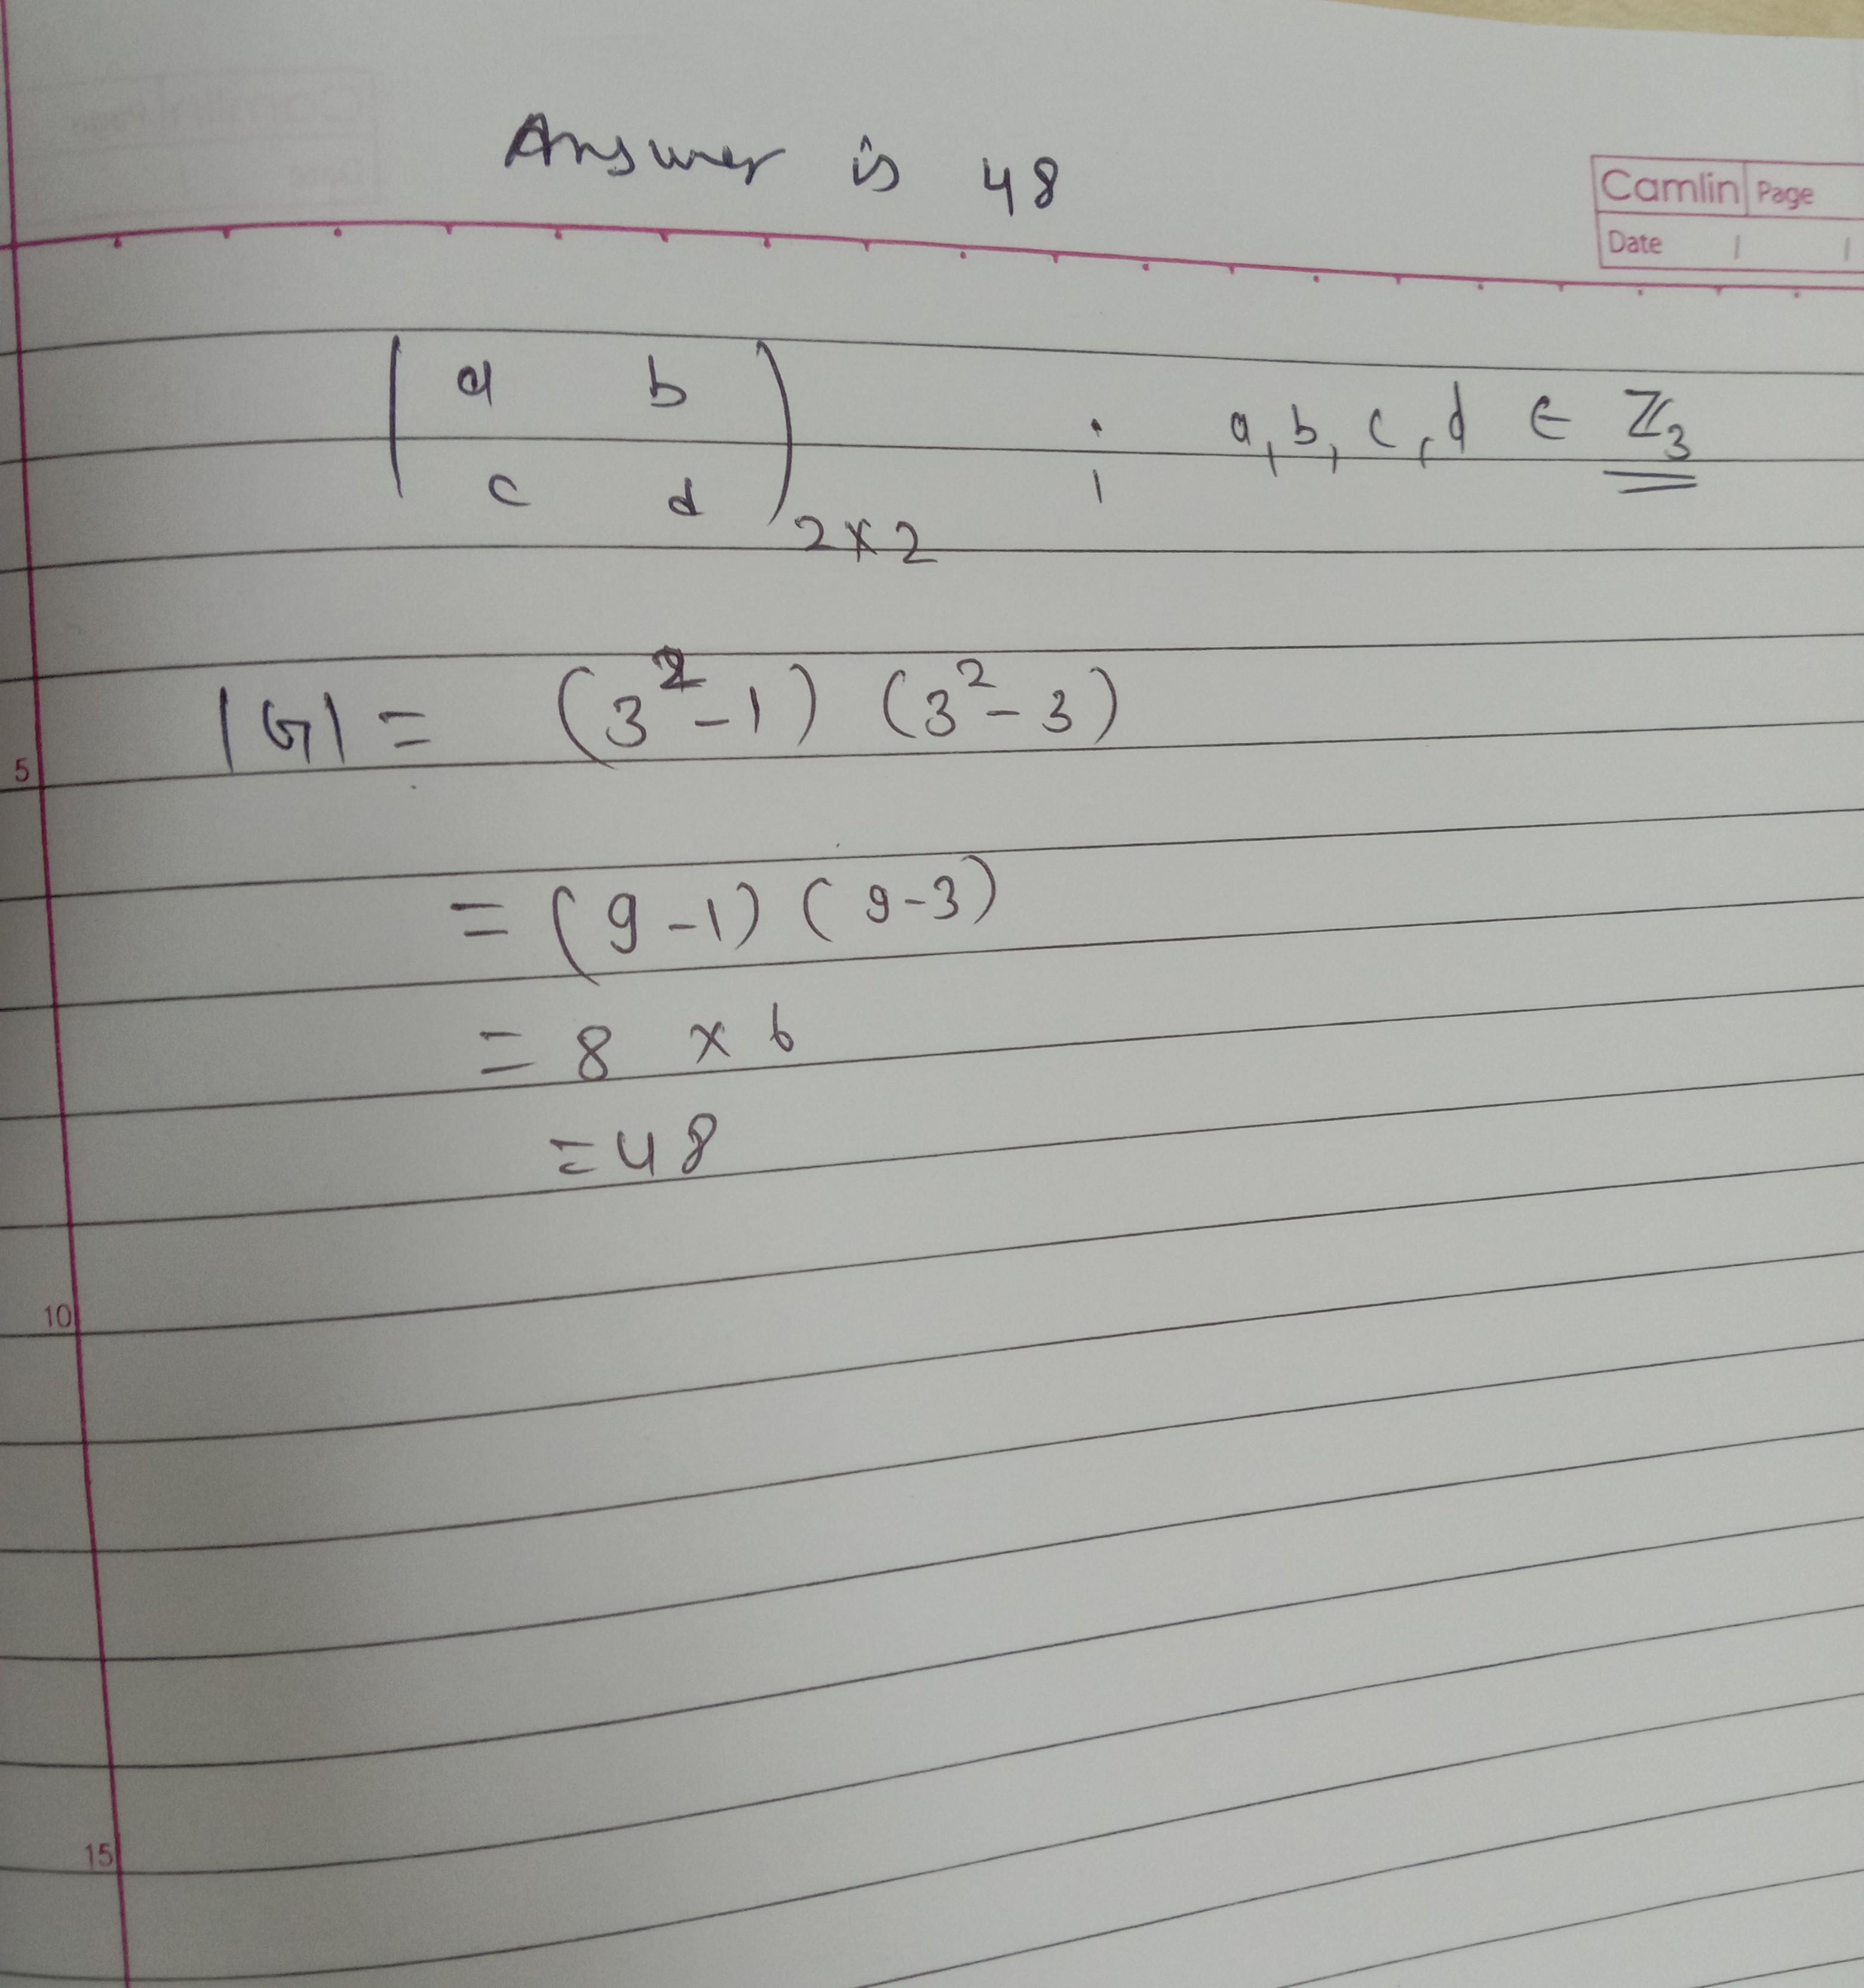 Answer is 48
Camlin Page
Date / /
a b
c d 2×2 ; a, b, c, d ∈ ℤ₃
|G| = (3²-1) (3²-3)
5
= (9-1) (9-3)
= 8 × 6
= 48
10
15